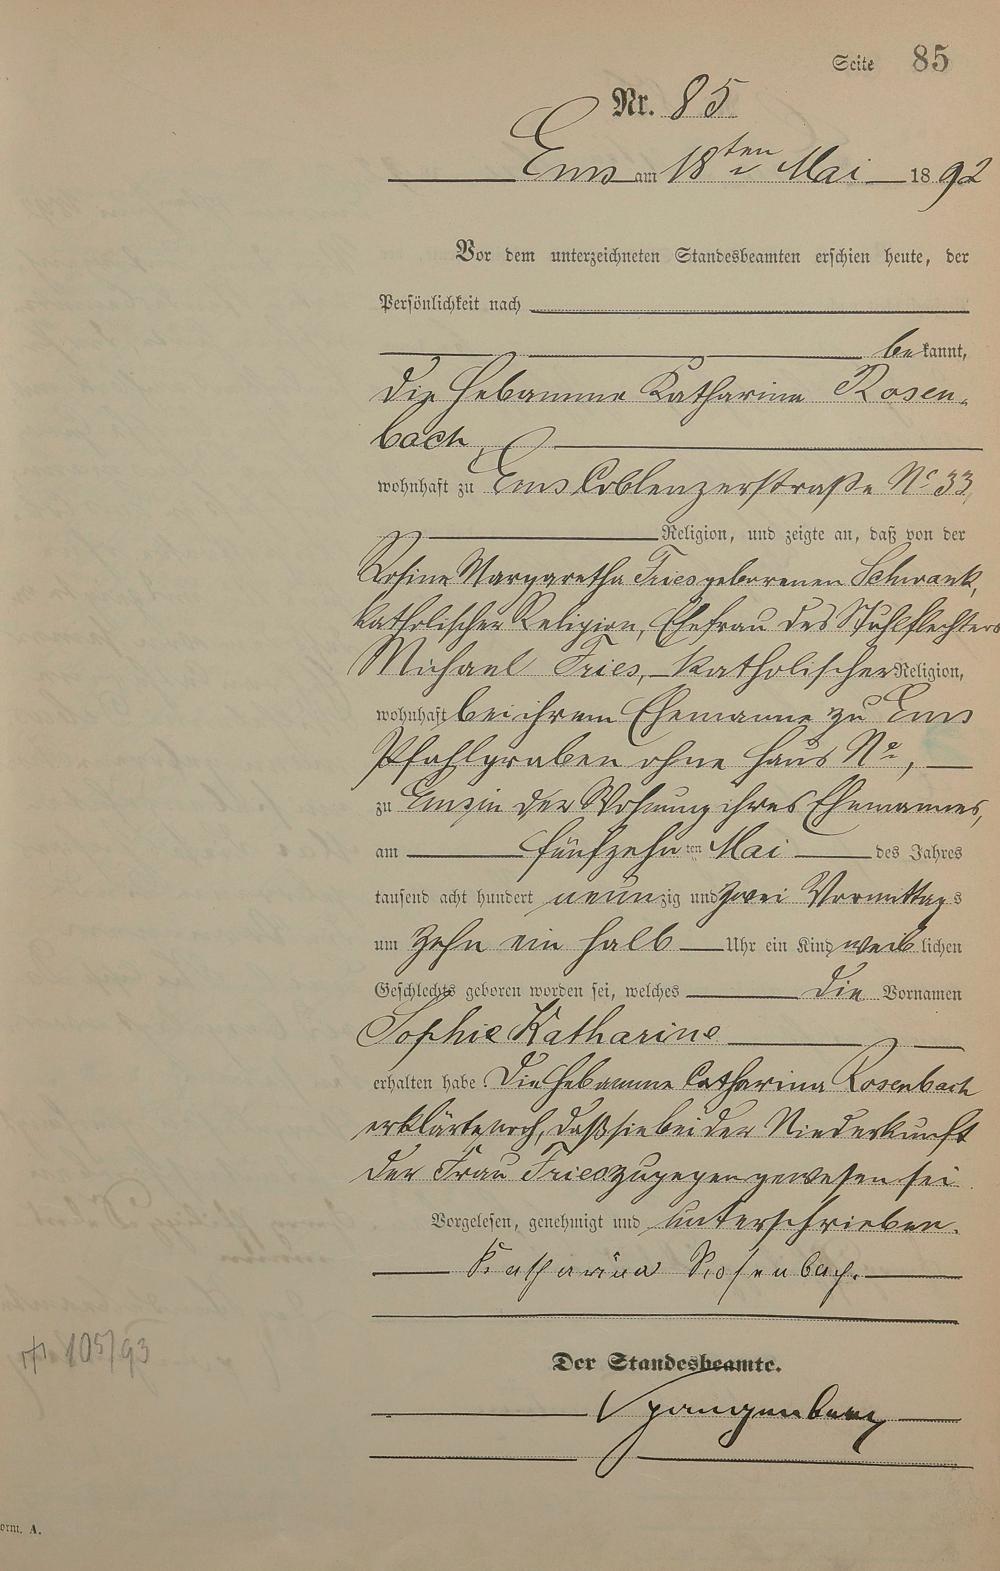 Seite 85
Nr. 85
Ems am 18ten Mai 1892
Vor dem unterzeichneten Standesbeamten erschien heute, der
Persönlichkeit nach
bekannt,
die Hebamme Katharina Rosen-
bach,
wohnhaft zu Ems Coblenzerstraße No 33,
Religion, und zeigte an, daß von der
Rosine Margaretha Fries geborenen Schwank,
katholischer Religion, Ehefrau des Stuhlflechters
Michael Fries, katholischer Religion,
wohnhaft bei ihrem Ehemanne zu Ems
Pfahlgraben ohne Haus No,
zu Ems in der Wohnung ihres Ehemannes,
am fünfzehnten Mai des Jahres
tausend acht hundert neunzig und zwei Vormittags
um zehn ein halb Uhr ein Kind weiblichen
Geschlechts geboren worden sei, welches die Vornamen
Sophie Katharine
erhalten habe. Die Hebamme Catharina Rosenbach
erklärte noch, daß sie bei der Niederkunft
der Frau Fries zugegen gewesen sei.
Vorgelesen, genehmigt und unterschrieben.
Katharina Rosenbach.
Der Standesbeamte.
Spangenberg
✝ 105/93
orm. A.